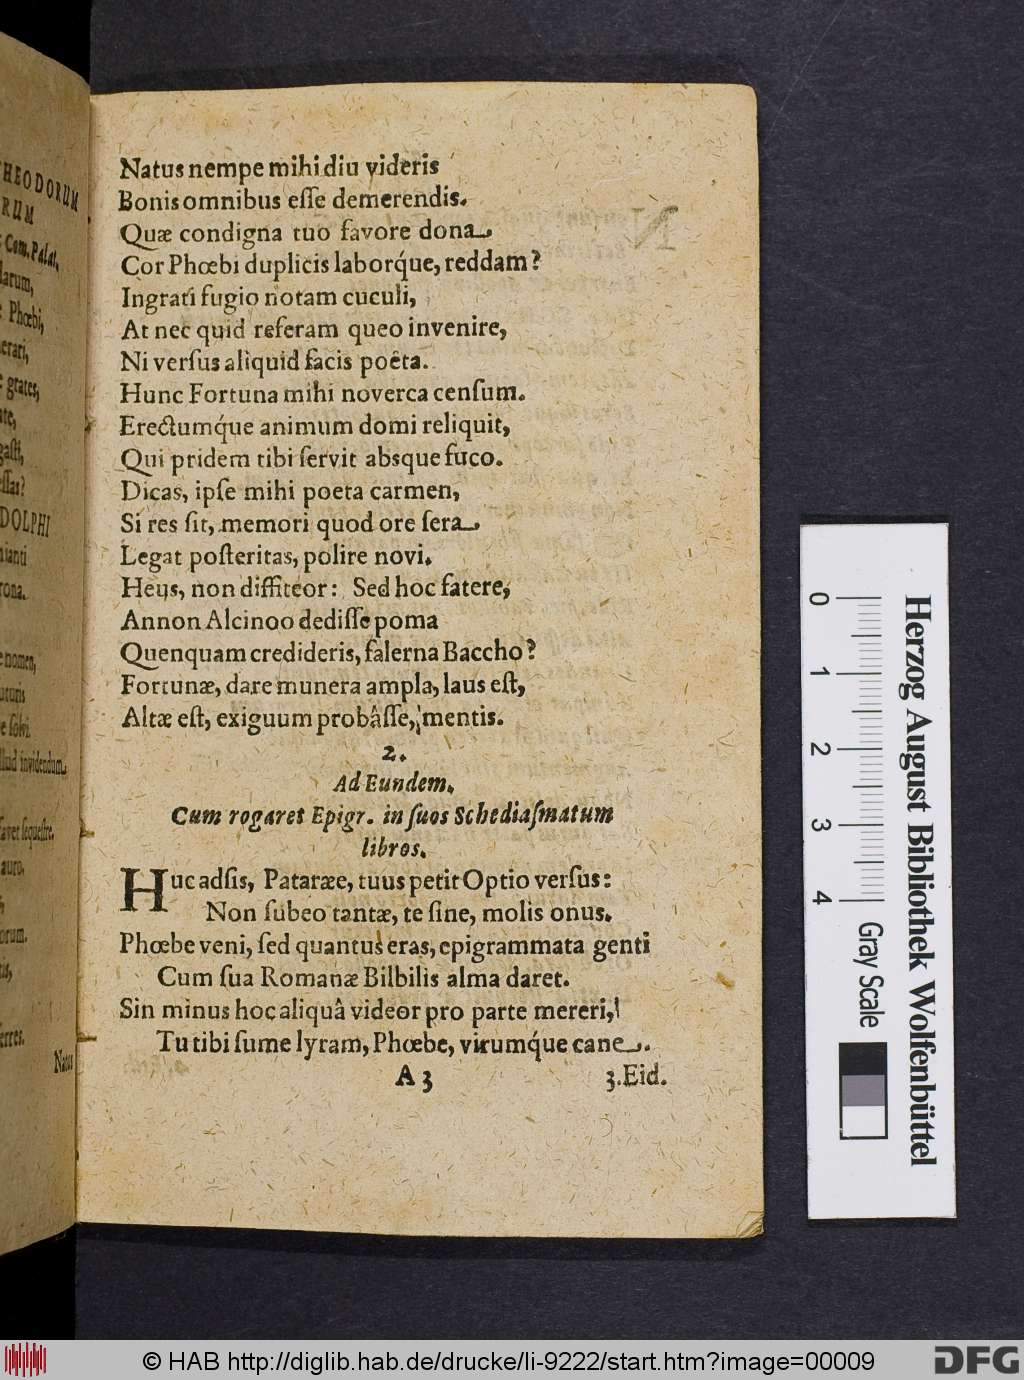 HEODORUM
RUM
Com. Palat.
larum,
Phœbi,
erari,
grates,
DOLPHI
rona.
nomen,
illud invidendum
favet sequestre.
auro.
orum.
Natus
Natus nempe mihi diu videris
Bonis omnibus eſſe demerendis.
Quæ condigna tuo favore dona,
Cor Phœbi duplicis laborq́ue, reddam?
Ingrati fugio notam cuculi,
At nec quid referam queo invenire,
Ni verſus aliquid facis poëta.
Hunc Fortuna mihi noverca cenſum.
Erectumq́ue animum domi reliquit,
Qui pridem tibi ſervit absque fuco.
Dicas, ipſe mihi poeta carmen,
Si res ſit, memori quod ore ſera
Legat poſteritas, polire novi.
Heus, non diffiteor: Sed hoc fatere,
Annon Alcinoo dediſſe poma
Quenquam credideris, falerna Baccho?
Fortunæ, dare munera ampla, laus eſt,
Altæ eſt, exiguum probâſſe, mentis.
2.
Ad Eundem.
Cum rogaret Epigr. in ſuos Schediaſmatum
libros.
Huc adſis, Pataræe, tuus petit Optio verſus:
Non ſubeo tantæ, te ſine, molis onus.
Phœbe veni, ſed quantus eras, epigrammata genti
Cum ſua Romanæ Bilbilis alma daret.
Sin minus hoc aliquâ videor pro parte mereri,
Tu tibi ſume lyram, Phœbe, virumq́ue cane.
A 3
3. Eid.
0 1 2 3 4
Herzog August Bibliothek Wolfenbüttel
Gray Scale
© HAB http://diglib.hab.de/drucke/li-9222/start.htm?image=00009
DFG